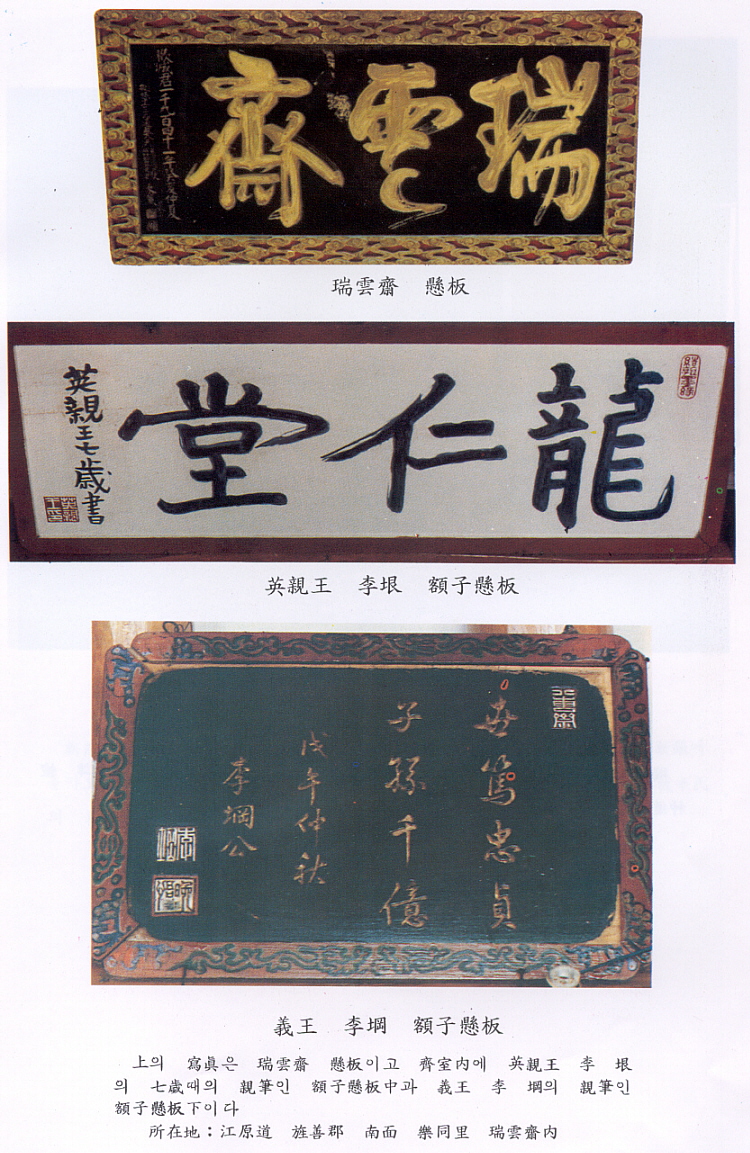 瑞雲齋
瑞雲齋 懸板
龍仁堂
英親王七歲書
英親王 李垠 額子懸板
世篤忠貞
子孫千億
戊午仲秋
李堈公
義王 李堈 額子懸板
上의 寫眞은 瑞雲齋 懸板이고 齊室內에 英親王 李 垠
의 七歲때의 親筆인 額子懸板中과 義王 李 堈의 親筆인
額子懸板下이다
所在地：江原道 旌善郡 南面 樂同里 瑞雲齋內